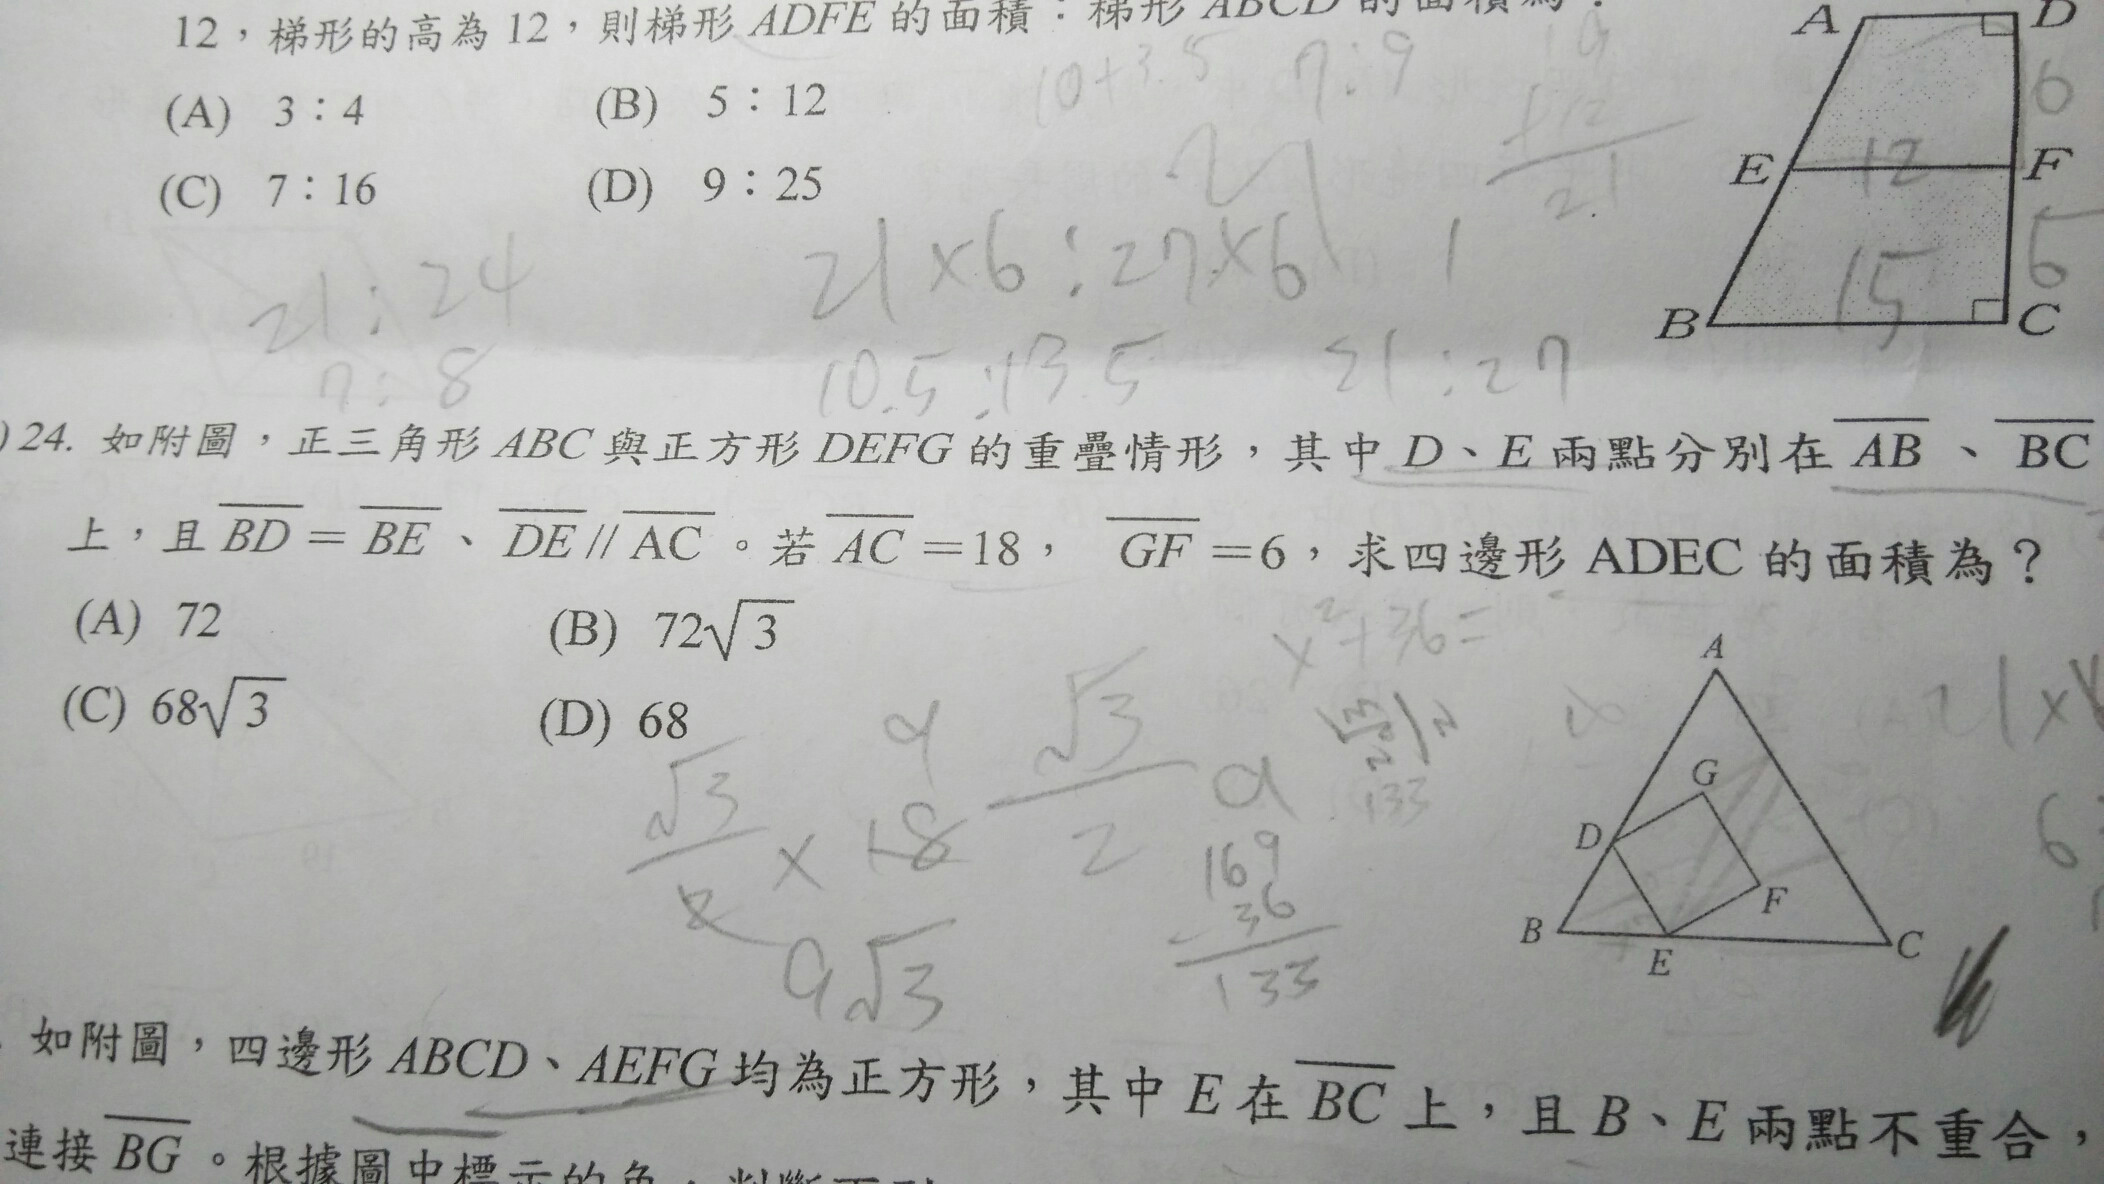 12，梯形的高為12，則梯形ADFE的面積：梯形ABCD的面積為？
(A) 3：4 (B) 5：12
(C) 7：16 (D) 9：25
A D
E F
B C
6
12
6
15
10+3.5 7:9
19
+12
21
21
21×6:27×6 1
21:24
7:8
10.5:13.5 21:27
)24. 如附圖，正三角形ABC與正方形DEFG的重疊情形，其中D、E兩點分別在AB、BC
上，且BD=BE、DE//AC。若AC=18，GF=6，求四邊形ADEC的面積為？
(A) 72 (B) 72√3
(C) 68√3 (D) 68
x²+36=
√3/2×18
9
9√3
√3/2 a
169
36
133
133
A
G
D
F
B
E
C
21×
6
如附圖，四邊形ABCD、AEFG均為正方形，其中E在BC上，且B、E兩點不重合，
連接BG。根據圖中標示的角，判斷下列